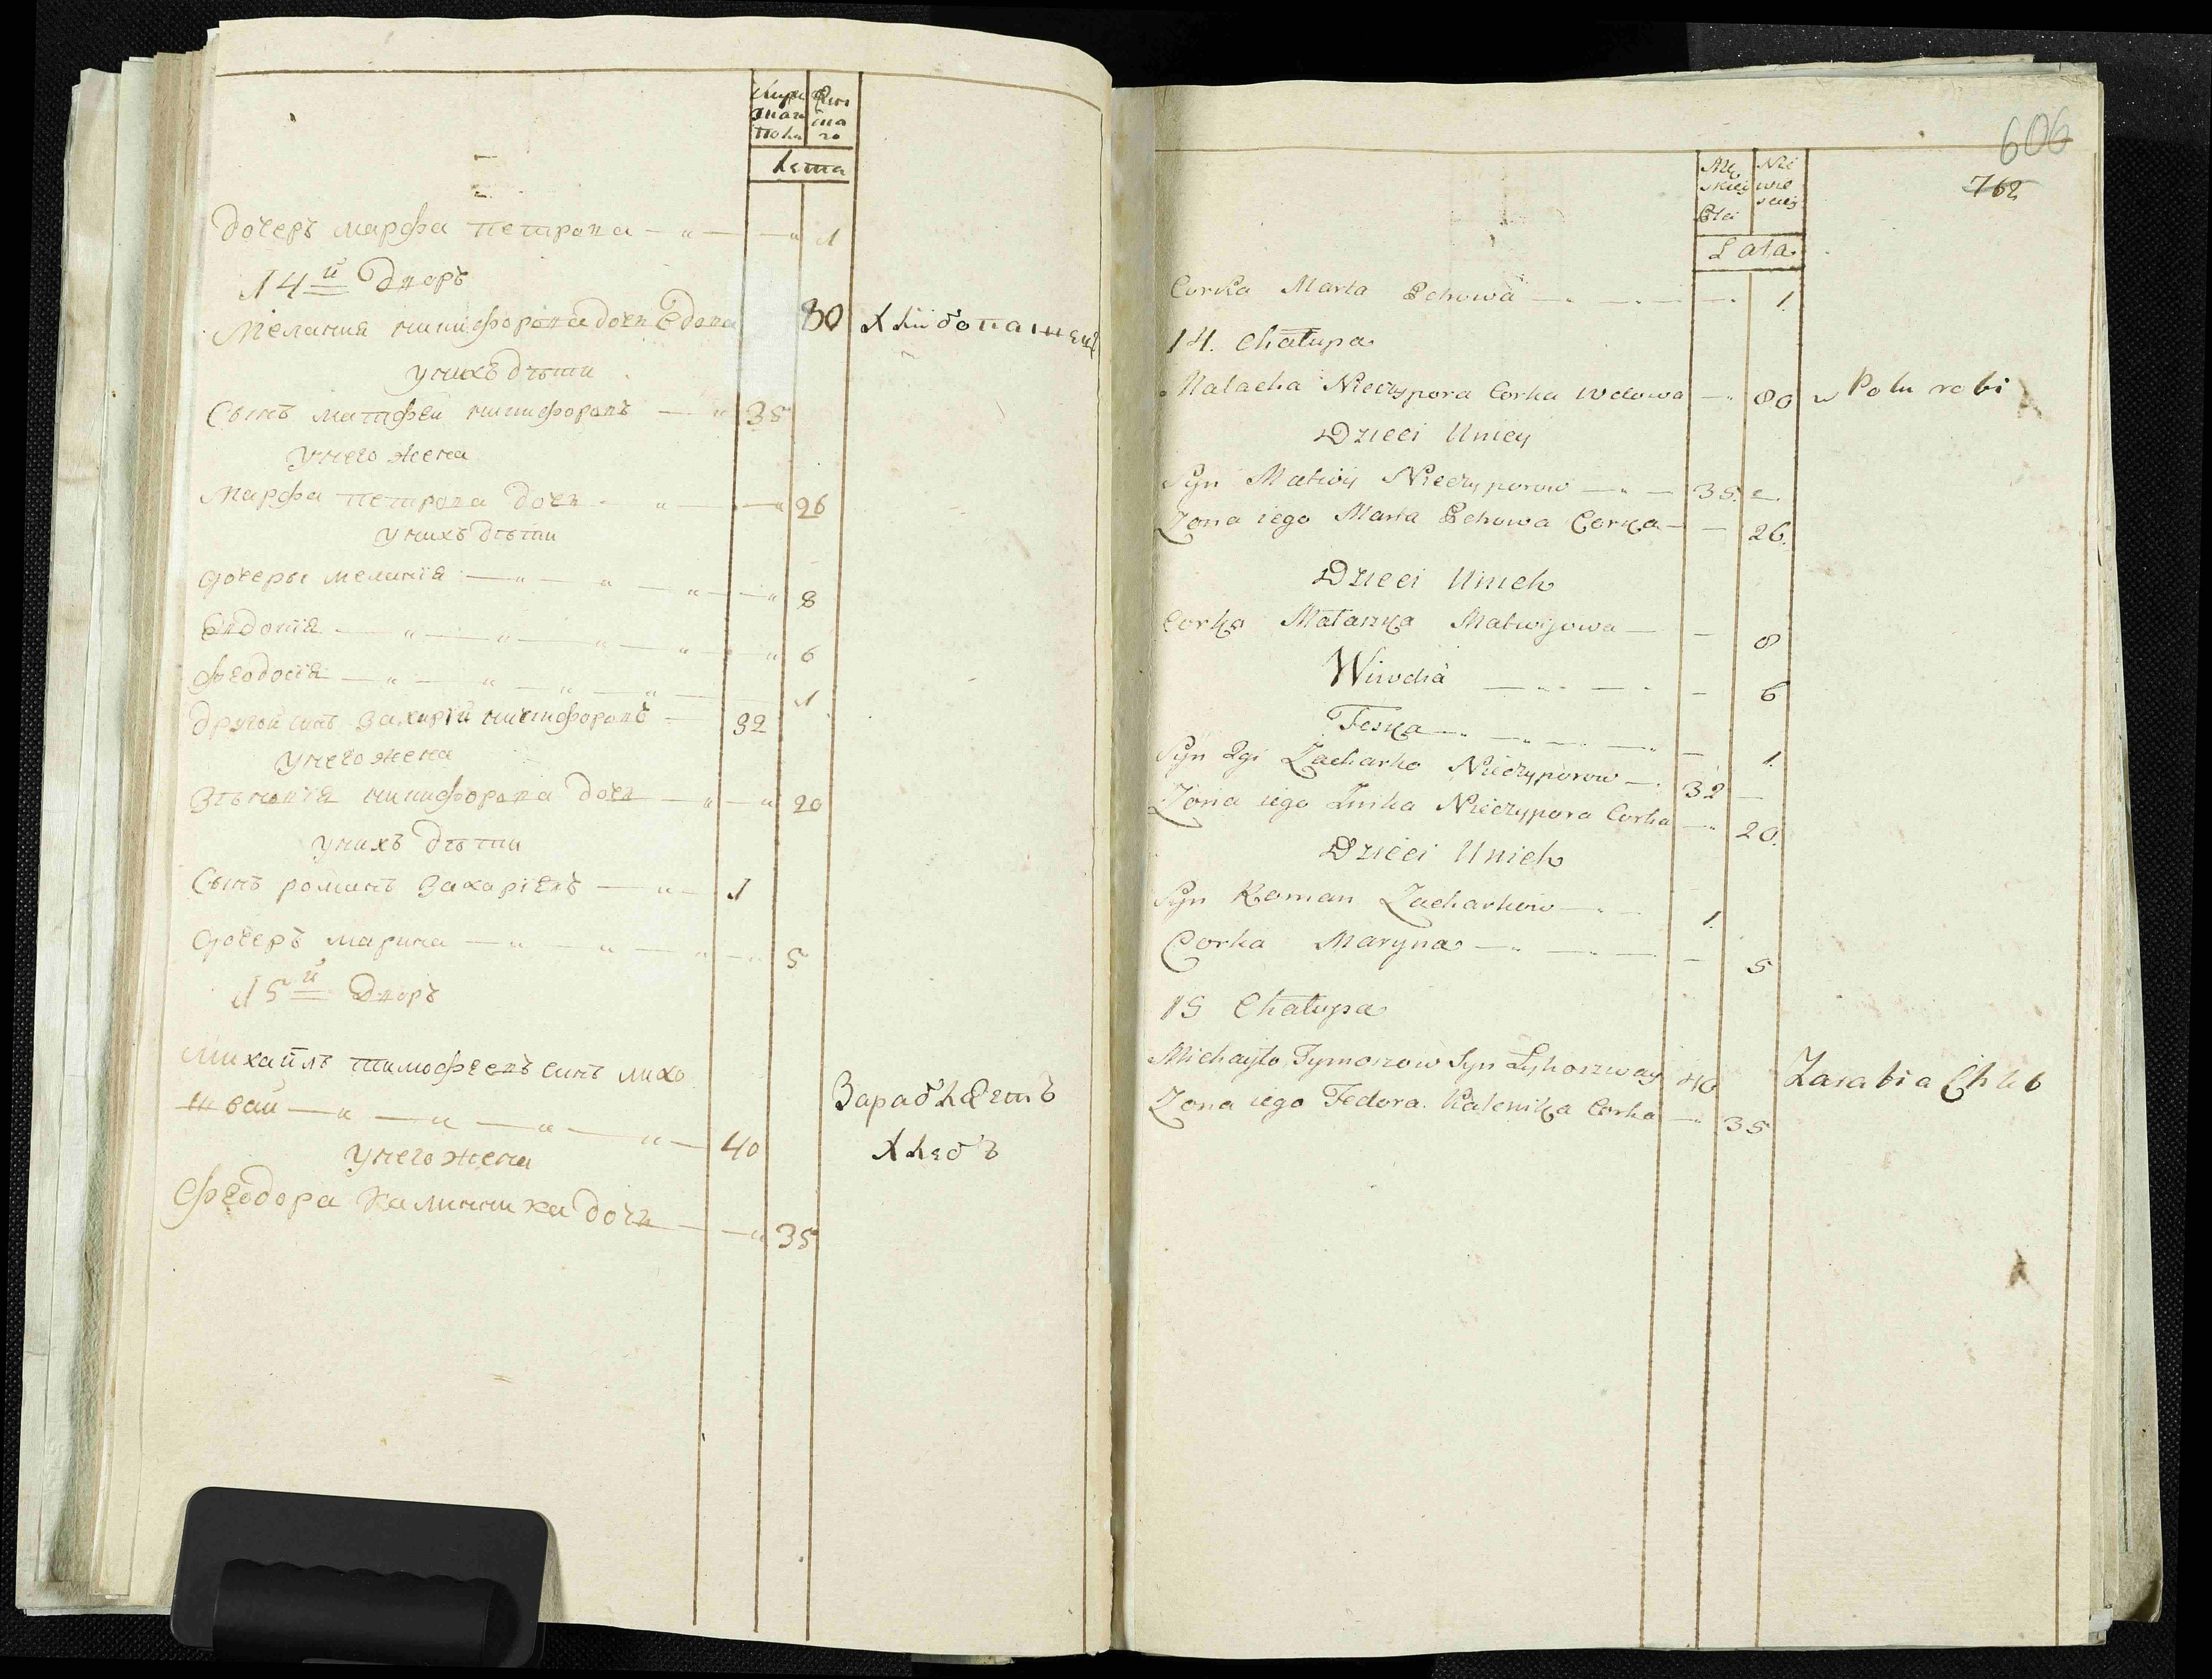 Мужеска Женска
го
пола
лета
дочеръ марфа петрова 1
14й Дворъ
Мелания никифорова дочь вдова 80 хлибопашецъ
у нихъ дѣти
Сынъ матфей никифоровъ 35
у него жена
Марфа петрова дочь 26
у нихъ дѣти
дочеры мелания 8
Евдокія 6
феодосія 1
другой синъ захарій никифоровъ 32
у него жена
Зѣновія никифорова дочь 20
у нихъ дѣти
Сынъ романъ Захаріевъ 1
дочеръ марина 5
15й Дворъ
михаилъ тимофеевъ синъ лихо
швай 40 Зараблаетъ
хлебъ
у него жена
Феодора калинника дочь 35
606
762
Mę Nie
skiej wie
sciej
Płci
Lata
Corka Marta Petrowa 1.
14. Chałupa
Małacha Nieczypora Corka wdowa 80 w Polu robi
Dzieci Uniey
Syn Matwiy Nieczyporow 35.
Zona iego Marta Petrowa Corka 26.
Dzieci Unich
Corka Małaszka Matwijowa 8
Wiwdia 6
Feska 1.
Syn 2gi Zacharko Nieczyporow 32
Zona iego Zinka Nieczypora Corka 20.
Dzieci Unich
Syn Roman Zacharkow 1.
Corka Maryna 5
15 Chałupa
Michayło Tymoszow Syn Lyhoszway 40 Zarabia Chleb
Zona iego Fedora Kalenika Corka 35